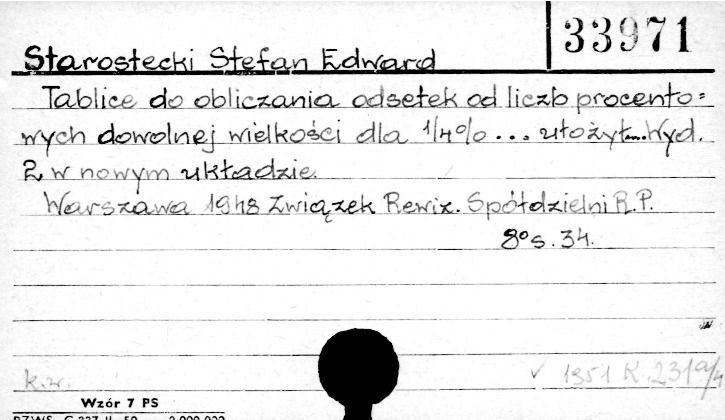 33971
Starostecki Stefan Edward
Tablice do obliczania odsetek od liczb procento=
wych dowolnej wielkości dla 1/4% ... ułożył... Wyd.
2 w nowym układzie.
Warszawa 1948 Związek Rewiz. Spółdzielni R.P.
8° s. 34.
k.w.
✓ 1951 K 231
Wzór 7 PS